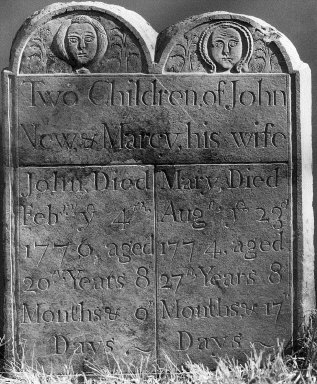 Two Children, of John
New, & Marcy, his wife
John, Died
Febry ye 4th,
1776, aged
20th Years 8
Months & 9d
Days.
Mary, Died
Augst ye 23d
1774, aged
27th Years 8
Months & 17
Days ~